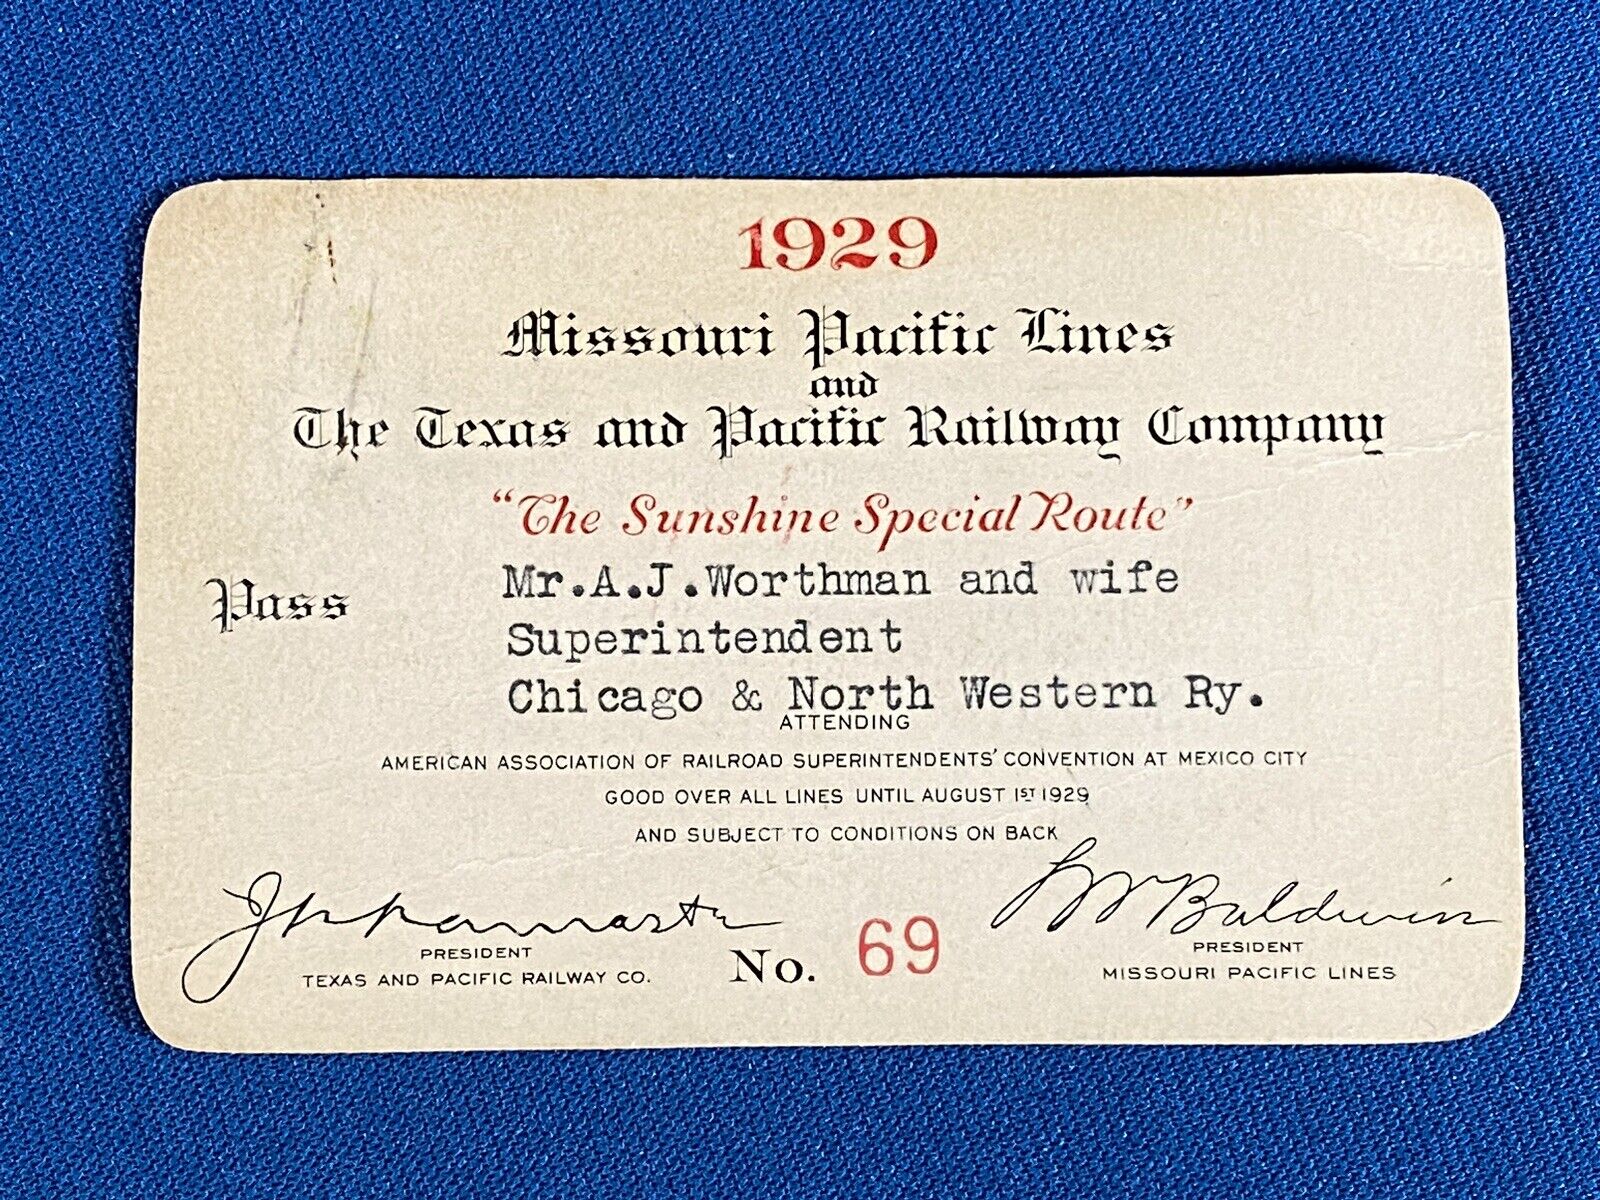 1929
Missouri Pacific Lines
and
The Texas and Pacific Railway Company
"The Sunshine Special Route"
Pass Mr.A.J.Worthman and wife
Superintendent
Chicago & North Western Ry.
ATTENDING
AMERICAN ASSOCIATION OF RAILROAD SUPERINTENDENTS' CONVENTION AT MEXICO CITY
GOOD OVER ALL LINES UNTIL AUGUST 1ST 1929
AND SUBJECT TO CONDITIONS ON BACK
L W Baldwin
PRESIDENT
TEXAS AND PACIFIC RAILWAY CO.
No. 69
PRESIDENT
MISSOURI PACIFIC LINES